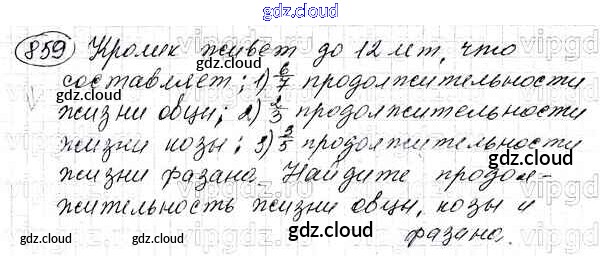 gdz.cloud
859 Кролик живет до 12 лет, что
составляет: 1) 6/7 продолжительности
жизни овцы; 2) 2/3 продолжительности
жизни козы; 3) 3/5 продолжительности
жизни фазана. Найдите продол-
жительность жизни овцы, козы и
фазана.
gdz.cloud
gdz.cloud
gdz.cloud
gdz.cloud
gdz.cloud
gdz.cloud